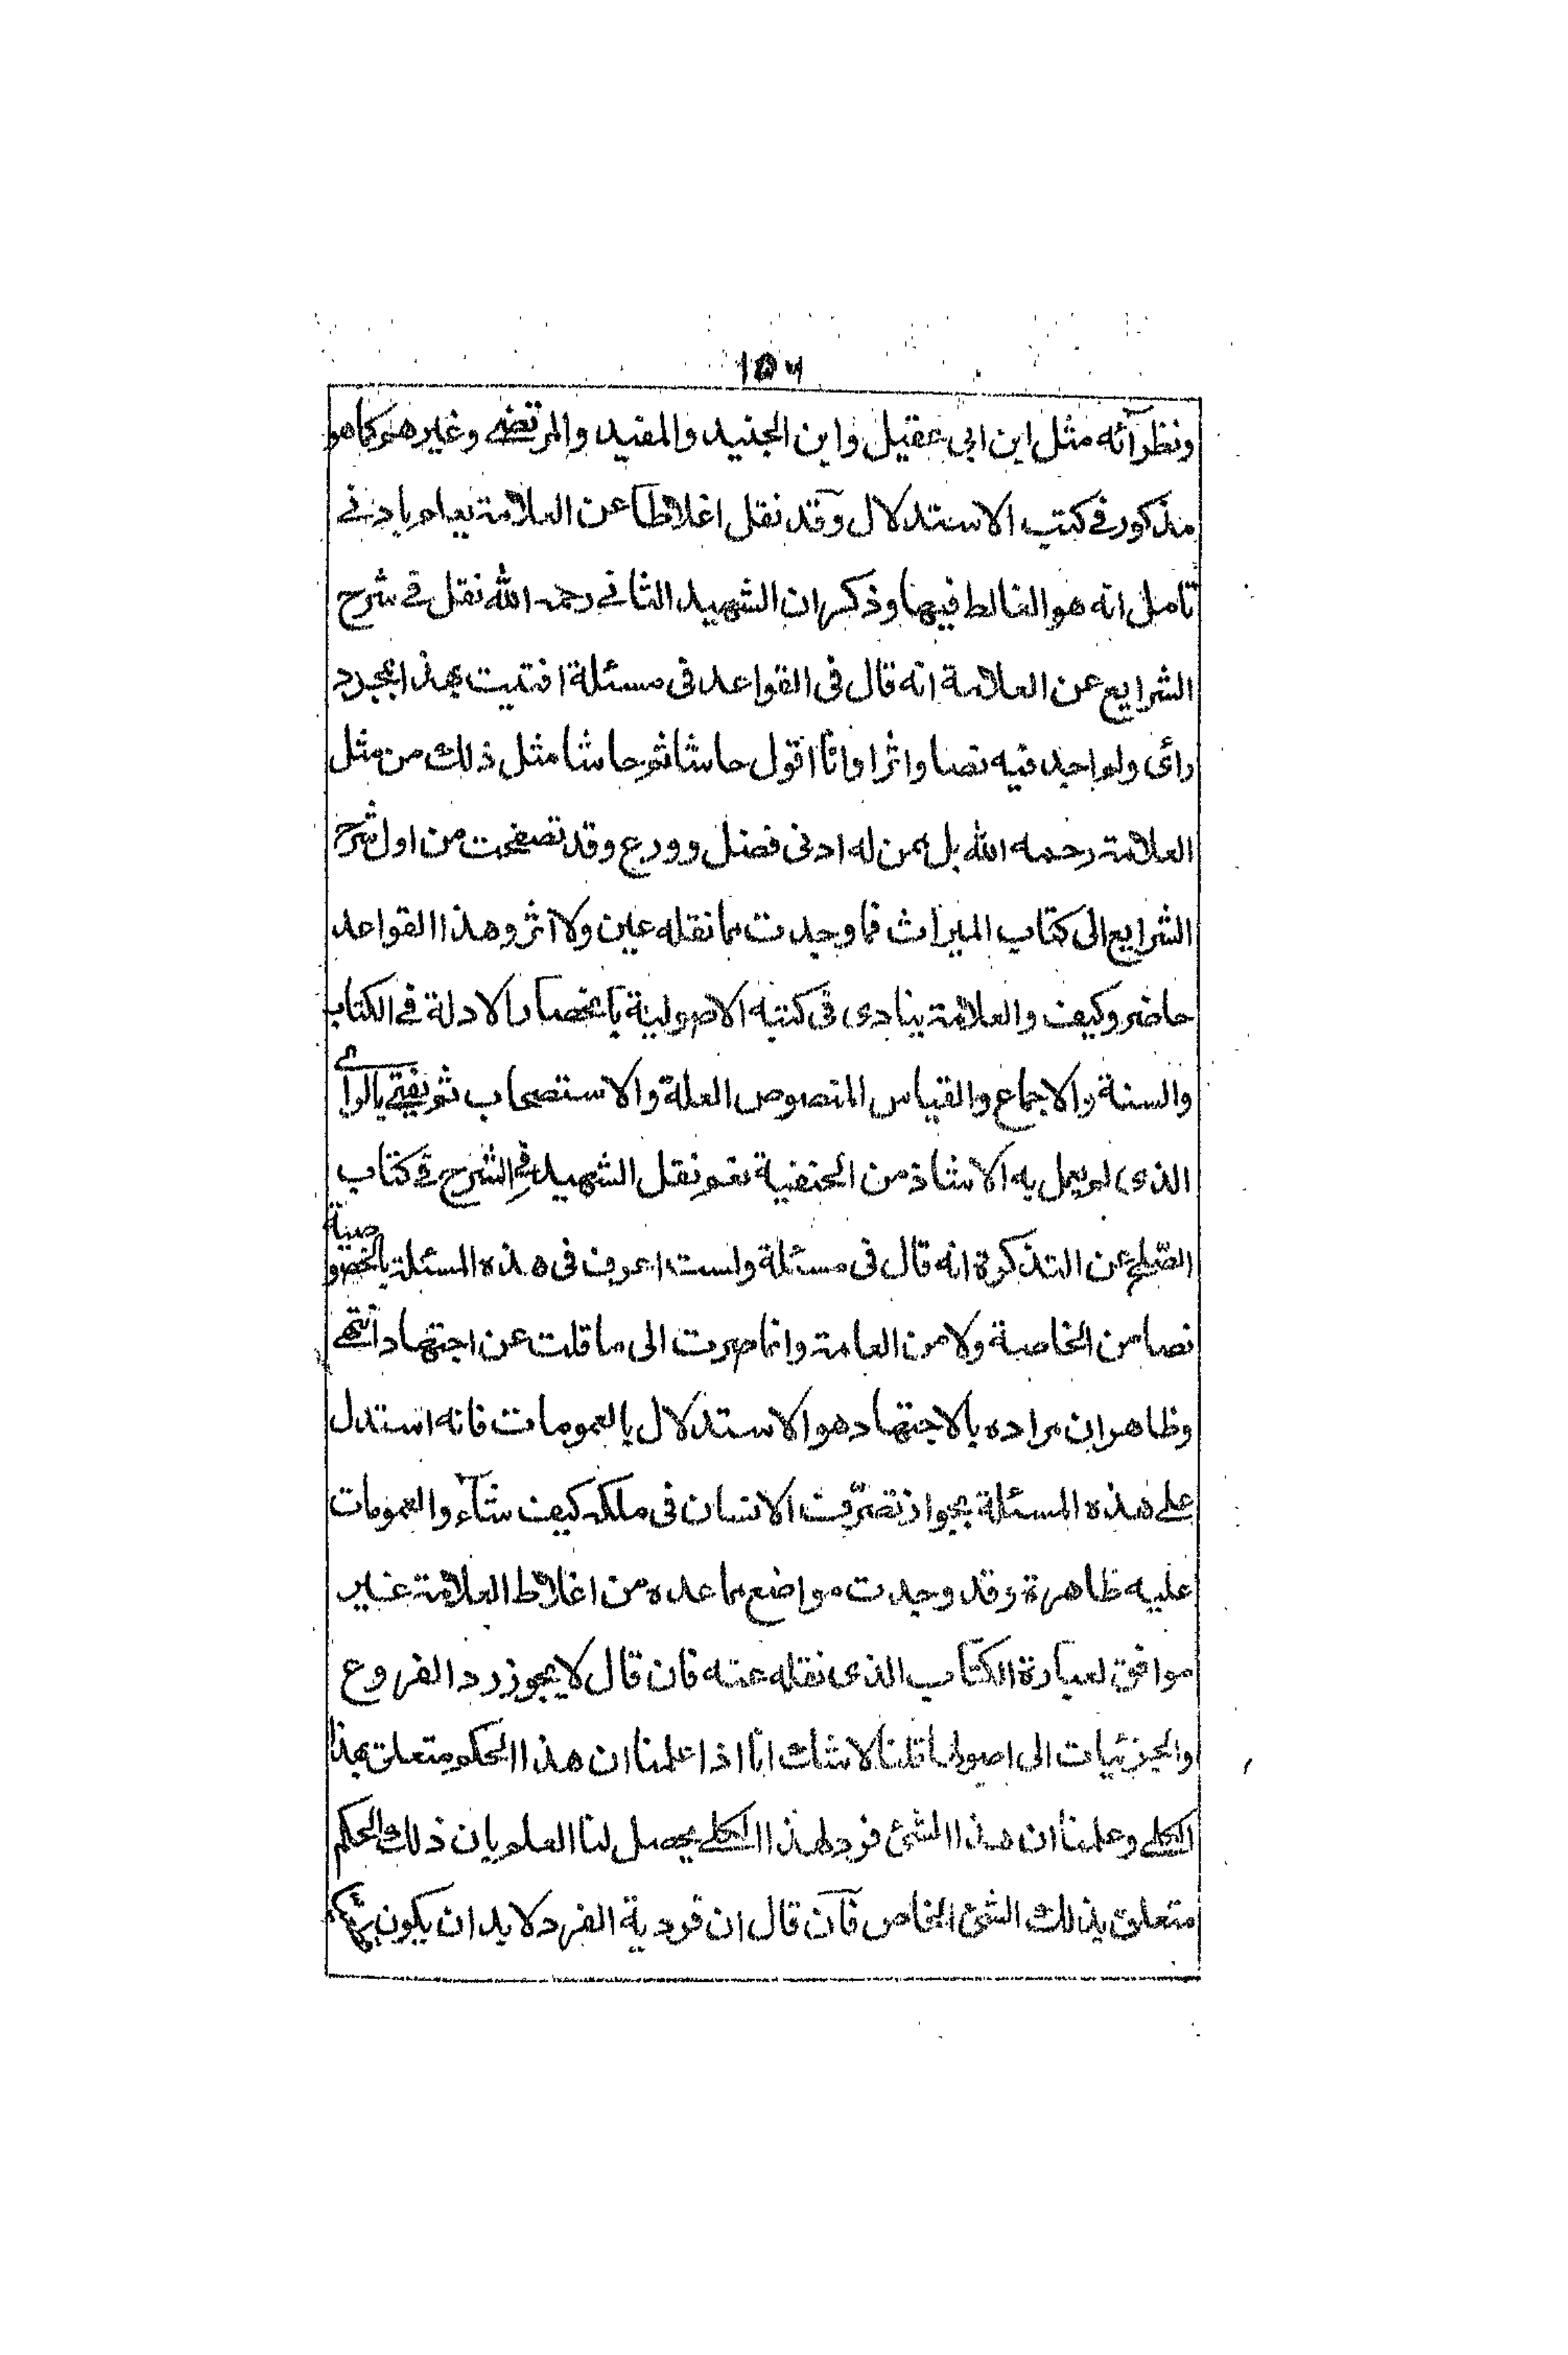 ١٥٦
ونظرآئه مثل ابن ابى عقيل وابن الجنيد والمفيد والمرتضى وغيرهم كما هو
مذكور فى كتب الاستدلال وقد نقل اغلاطا عن العلامة يعلم بادنى
تامل انه هو الغالط فيها وذكر ان الشهيد الثانى رحمه الله نقل فى شرح
الشرايع عن العلامة انه قال فى القواعد فى مسئلة افتيت بهذا بمجرد
رأى ولم اجد فيه نصا واثرا وانا اقول حاشا ثم حاشا مثل ذلك من مثل
العلامة رحمه الله بل ممن له ادنى فضل وورع وقد تصفحت من اول شرح
الشرايع الى كتاب الميراث فما وجدت مما نقله عين ولا اثر وهذا القواعد
حاضر وكيف والعلامة ينادى فى كتبه الاصولية بانحصار الادلة فى الكتاب
والسنة والاجماع والقياس المنصوص العلة والاستصحاب ثم يفتى بالراى
الذى لم يعمل به الا شاذ من الحنفية نعم نقل الشهيد فى الشرح فى كتاب
الصلح عن التذكرة انه قال فى مسئلة ولست اعرف فى هذه المسئلة بالخصوصية
نصا من الخاصة ولا من العامة وانما صرت الى ما قلت عن اجتهاد انتهى
وظاهر ان مراده بالاجتهاد هو الاستدلال بالعمومات فانه استدل
على هذه المسئلة بجواز تصرّف الانسان فى ملكه كيف شآء والعمومات
عليه ظاهرة وقد وجدت مواضع مما عده من اغلاط العلامة غير
موافق لعبارة الكتاب الذى نقله عنه فان قال لا يجوز رد الفروع
والجزئيات الى اصولها قلنا لا شك انا اذا علمنا ان هذا الحكم متعلق بهذا
الكلى وعلمنا ان هذا الشئ فرد لهذا الكلى يحصل لنا العلم بان ذلك الحكم
متعلق بذلك الشئ الخاص فآن قال ان فردية الفرد لا بد ان يكون